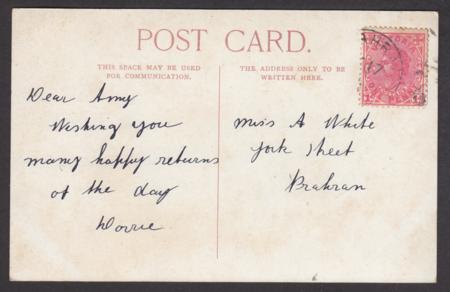 POST CARD.
THIS SPACE MAY BE USED
FOR COMMUNICATION.
THE ADDRESS ONLY TO BE
WRITTEN HERE.
Dear Amy
Wishing you
many happy returns
of the day
Dorrie
Miss A White
York Street
Prahran